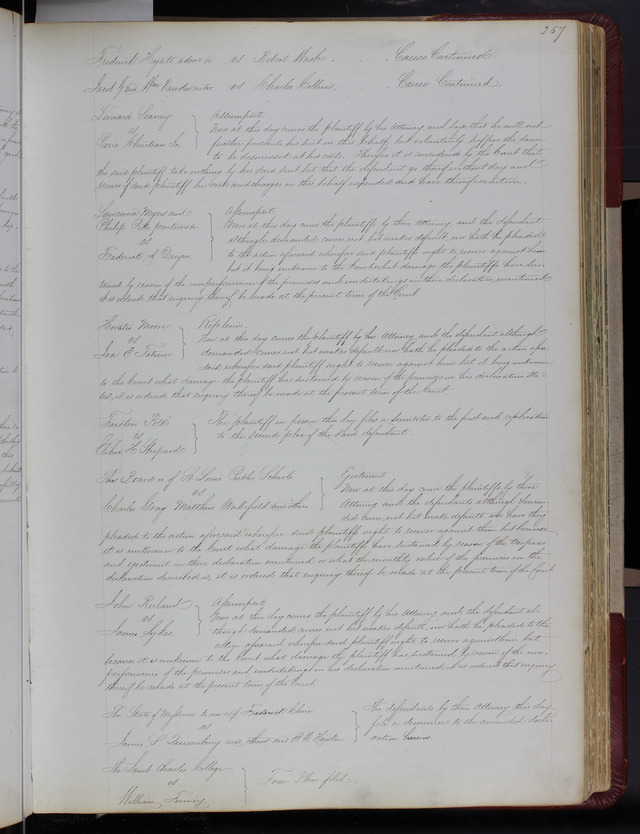 257
Frederick Hyatt admr &c vs Robert Wash. Cause Continued.
Vandeventer vs Charles Collins Cause Continued.
Assumpsit
vs Now at this day comes the plaintiff by his Attorney and says that he will not
Christian further prosecute his suit in this behalf, but voluntarily suffers the same
to be dismissed at his costs. Therefore it is considered by the Court that
the said plaintiff take nothing by his said suit but that the defendant go thereof without day and
recover of said plaintiff his costs and charges in this behalf expended and have thereof execution.
Lawrence Myers and Assumpsit
Philip Now at this day comes the plaintiffs by their Attorney, and the defendant
vs although demanded comes not but makes default nor hath he pleaded
Frederick A to the action aforesaid wherefore said plaintiffs ought to recover against him
but it being unknown to the Court what damage the plaintiffs have sus-
tained by reason of the nonperformance of the promises and undertakings in their declaration mentioned
it is ordered that enquiry thereof be made at the present term of the Court
Horatio Moore Replevin
vs Now at this day comes the plaintiff by his Attorney and the defendant although
Ira C. Tatum demanded comes not but makes default nor hath he pleaded to the action afore-
said wherefore said plaintiff ought to recover against him but it being unknown
to the Court what damage the plaintiff has sustained by reason of the premises in his declaration sta-
ted, it is ordered that enquiry thereof be made at the present term of the Court.
The plaintiff in person this day files a similiter to the first and replication
vs to the second plea of the said defendant.
H. Shepard
The Board &c of St Louis Public Schools Ejectment
vs Now at this day come the plaintiffs by their
Charles Gray Matthew Wakefield Attorney and the defendants although deman-
ded come not but make default nor have they
pleaded to the action aforesaid wherefore said plaintiffs ought to recover against them but because
it is unknown to the Court what damage the plaintiffs have sustained by reason of the trespass
and ejectment in their declaration mentioned or what the monthly value of the premises in the
declaration described is, it is ordered that enquiry thereof be made at the present term of the Court.
John Assumpsit
vs Now at this day comes the plaintiff by his Attorney and the defendant al-
James Sykes though demanded comes not but makes default, nor hath he pleaded to the
action aforesaid wherefore said plaintiff ought to recover against him but
because it is unknown to the Court what damage the plaintiff has sustained by reason of the non-
performance of the promises and undertakings in his declaration mentioned it is ordered that enquiry
thereof be made at the present term of the Court
The State of Missouri to use of Frederick The defendants by their Attorney this day
vs file a demurrer to the amended decla-
James ration herein
The Saint Charles College
vs Four Pleas filed.
William Finney